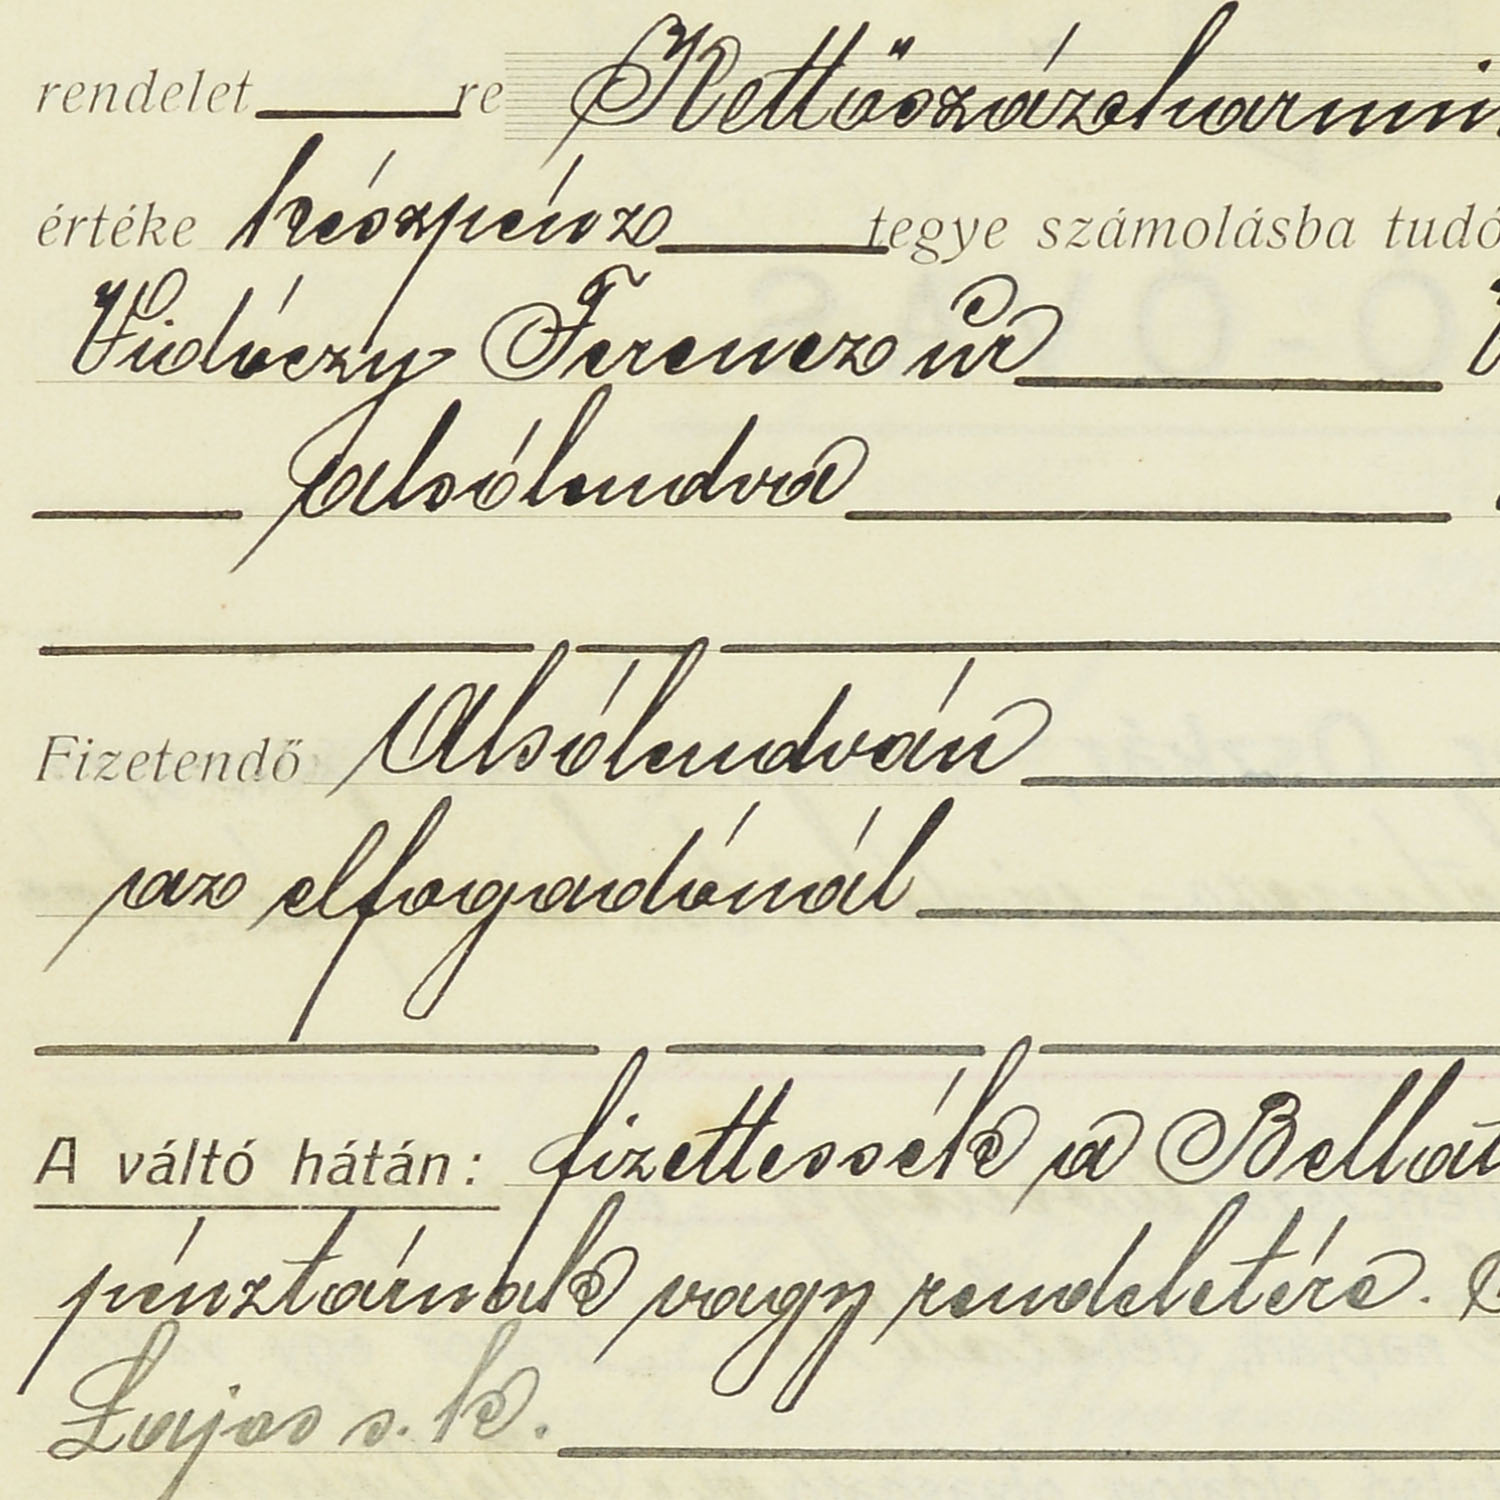 rendelet re Kettőszázharmin
értéke készpénz tegye számolásba tudó
Vidóczy Ferencz úr
Alsólendva
Fizetendő Alsólendván
az elfogadónál
A váltó hátán: fizettessék a Bellat
pénztárnak vagy rendeletére.
Lajos s. k.